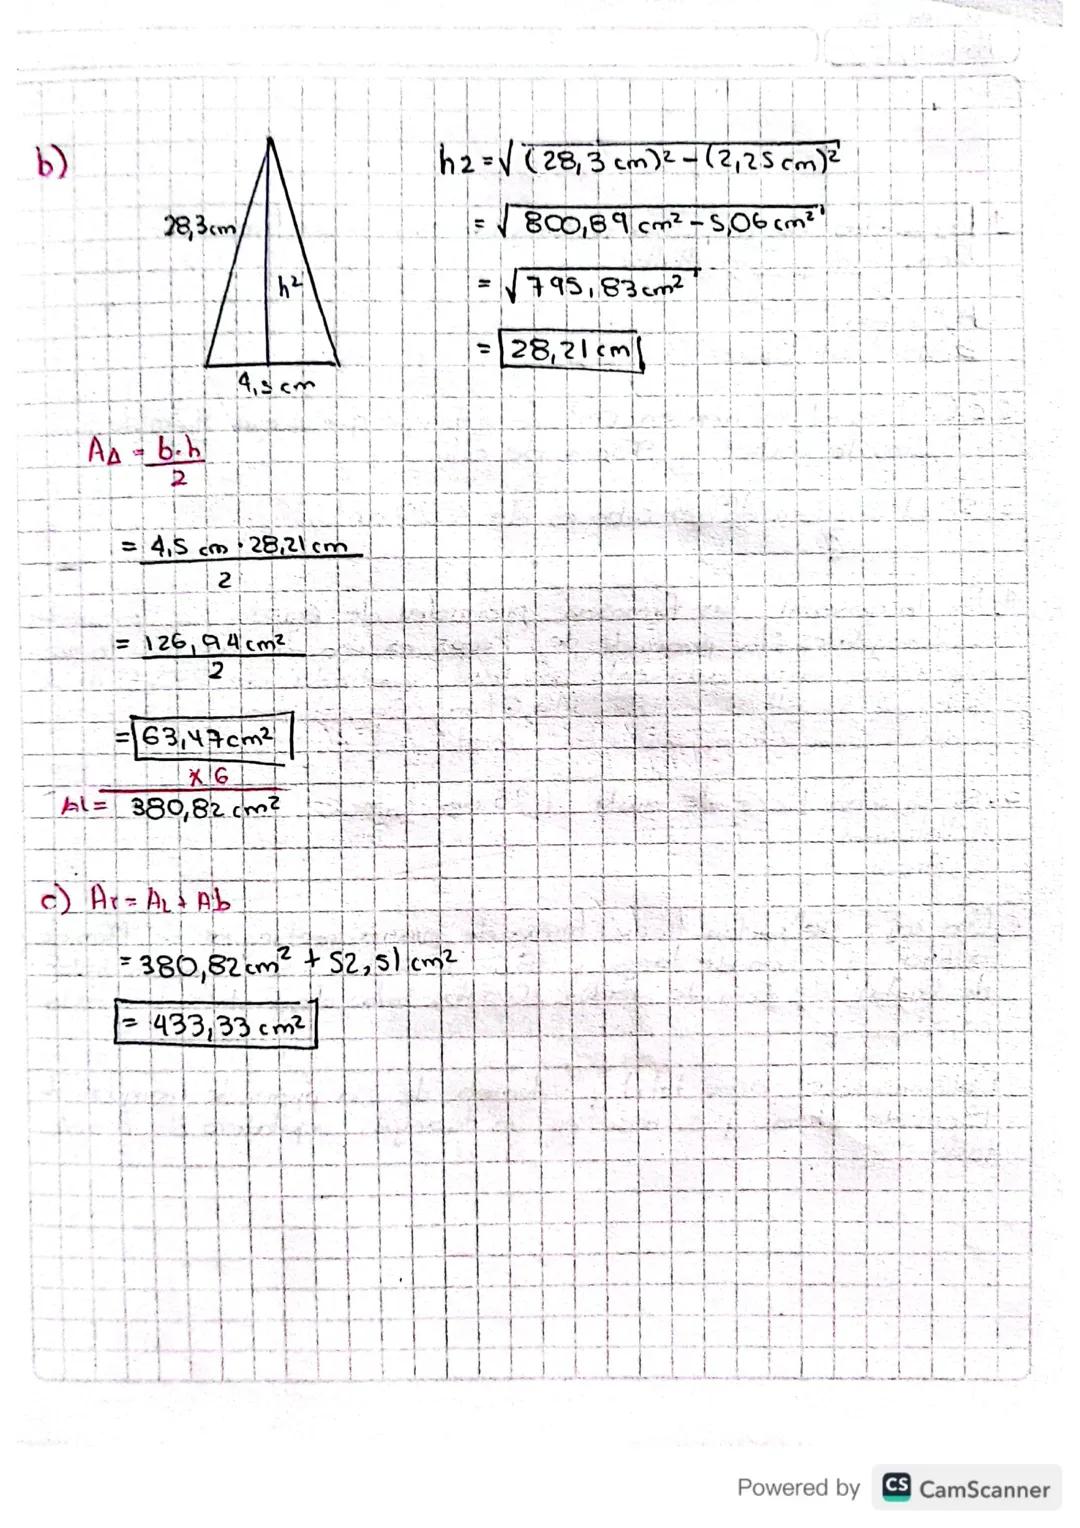 b)
h2 = √(28,3 cm)2 - (2,25 cm)2
28,3cm
= √800,89 cm2 - 5,06 cm2
h2
= √795,83 cm2
= 28,21 cm
4,5 cm
A△ = b·h
2
= 4,5 cm · 28,21 cm
2
= 126,94 cm2
2
= 63,47 cm2
x 6
Al = 380,82 cm2
c) AT = AL + Ab
= 380,82 cm2 + 52,51 cm2
= 433,33 cm2
Powered by CS CamScanner